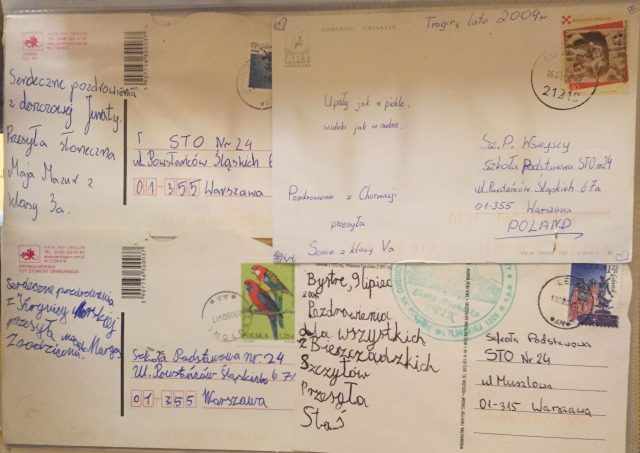 Serdeczne pozdrowienia
z deszczowej Juraty.
Przesyła słoneczna
Maja Mazur z
klasy 3a.
STO Nr 24
ul. Powstańców Śląskich 6
01-355 Warszawa
ADRIATIC CROATIA
Trogir, lato 2009r
Upały jak w piekle,
widoki jak w niebie.
Pozdrowienia z Chorwacji
przesyła
Sonia z klasy Va
21218
Sz.P. Wszyscy
Szkoła Podstawowa STO nr24
ul. Powstańców Śląskich 67a
01-355 Warszawa
POLAND
Serdeczne pozdrowienia
z Krynicy Morskiej
przesyła
POLSKA 1,25zł
Szkoła Podstawowa nr 24
Ul. Powstańców Śląskich 67a
01-355 Warszawa
Bystre, 9 lipiec
Pozdrowienia
dla wszystkich
z Bieszczadzkich
Szczytów
Przesyła
Staś
Szkoła Podstawowa
STO Nr 24
ul Muralowa
01-315 Warszawa